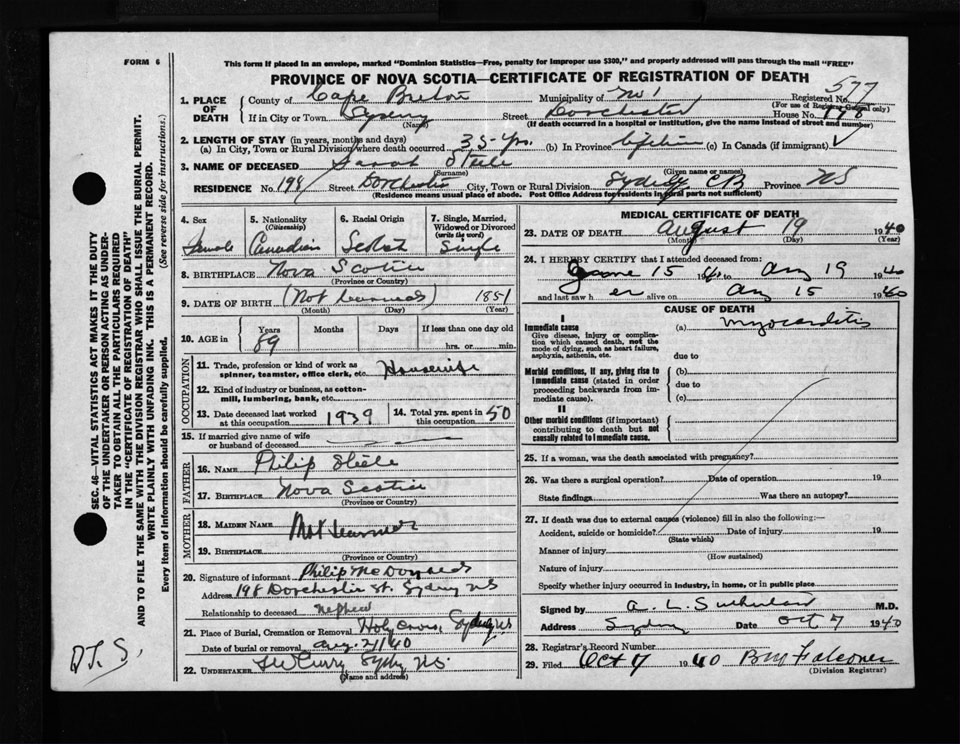 FORM 6
This form if placed in an envelope, marked "Dominion Statistics—Free, penalty for improper use $300," and properly addressed will pass through the mail "FREE"
PROVINCE OF NOVA SCOTIA—CERTIFICATE OF REGISTRATION OF DEATH
577
1. PLACE OF DEATH County of Cape Breton Municipality of No 1 Registered No.
(For use of Registrar General only)
If in City or Town Sydney Street Dorchester House No. 198
(Name) (If death occurred in a hospital or institution, give the name instead of street and number)
2. LENGTH OF STAY (in years, months and days)
(a) In City, Town or Rural Division where death occurred 35 yrs. (b) In Province lifetime (c) In Canada (if immigrant)
3. NAME OF DECEASED Sarah Steele
(Surname) (Given name or names)
RESIDENCE No. 198 Street Dorchester City, Town or Rural Division Sydney CB Province NS
(Residence means usual place of abode. Post Office Address for residents in rural parts not sufficient)
4. Sex Female
5. Nationality (Citizenship) Canadian
6. Racial Origin Scotch
7. Single, Married, Widowed or Divorced (write the word) Single
8. BIRTHPLACE Nova Scotia
(Province or Country)
9. DATE OF BIRTH (Not learned) 1851
(Month) (Day) (Year)
10. AGE in Years 89 Months Days If less than one day old
hrs. or min.
OCCUPATION
11. Trade, profession or kind of work as spinner, teamster, office clerk, etc. Housewife
12. Kind of industry or business, as cotton-mill, lumbering, bank, etc.
13. Date deceased last worked at this occupation 1939
14. Total yrs. spent in this occupation 50
15. If married give name of wife or husband of deceased
FATHER
16. NAME Philip Steele
17. BIRTHPLACE Nova Scotia
(Province or Country)
MOTHER
18. MAIDEN NAME Not learned
19. BIRTHPLACE
(Province or Country)
20. Signature of informant Philip McDonald
Address 198 Dorchester St. Sydney NS
Relationship to deceased nephew
21. Place of Burial, Cremation or Removal Holy Cross, Sydney NS.
Date of burial or removal Aug. 21/40
22. UNDERTAKER Curry Sydney NS.
(Name and address)
MEDICAL CERTIFICATE OF DEATH
23. DATE OF DEATH August 19 1940
(Month) (Day) (Year)
24. I HEREBY CERTIFY that I attended deceased from:
June 15 40 to Aug 19 1940
and last saw h er alive on Aug 15 1940
CAUSE OF DEATH
I
Immediate cause
Give disease, injury or complication which caused death, not the mode of dying, such as heart failure, asphyxia, asthenia, etc.
(a) Myocarditis
due to
Morbid conditions, if any, giving rise to immediate cause (stated in order proceeding backwards from immediate cause).
(b)
due to
(c)
II
Other morbid conditions (if important) contributing to death but not causally related to immediate cause.
25. If a woman, was the death associated with pregnancy?
26. Was there a surgical operation? Date of operation 19
State findings Was there an autopsy?
27. If death was due to external causes (violence) fill in also the following:—
Accident, suicide or homicide? Date of injury 19
(State which)
Manner of injury
(How sustained)
Nature of injury
Specify whether injury occurred in industry, in home, or in public place
Signed by A. L. Sutherland M.D.
Address Sydney Date Oct 7 1940
28. Registrar's Record Number
29. Filed Oct 7 1940 B M Falconer
(Division Registrar)
SEC. 46—VITAL STATISTICS ACT MAKES IT THE DUTY
OF THE UNDERTAKER OR PERSON ACTING AS UNDER-
TAKER TO OBTAIN ALL THE PARTICULARS REQUIRED
IN THE "CERTIFICATE OF REGISTRATION OF DEATH"
AND TO FILE THE SAME WITH THE DIVISION REGISTRAR WHO SHALL ISSUE THE BURIAL PERMIT.
WRITE PLAINLY WITH UNFADING INK. THIS IS A PERMANENT RECORD.
Every item of information should be carefully supplied. (See reverse side for instructions.)